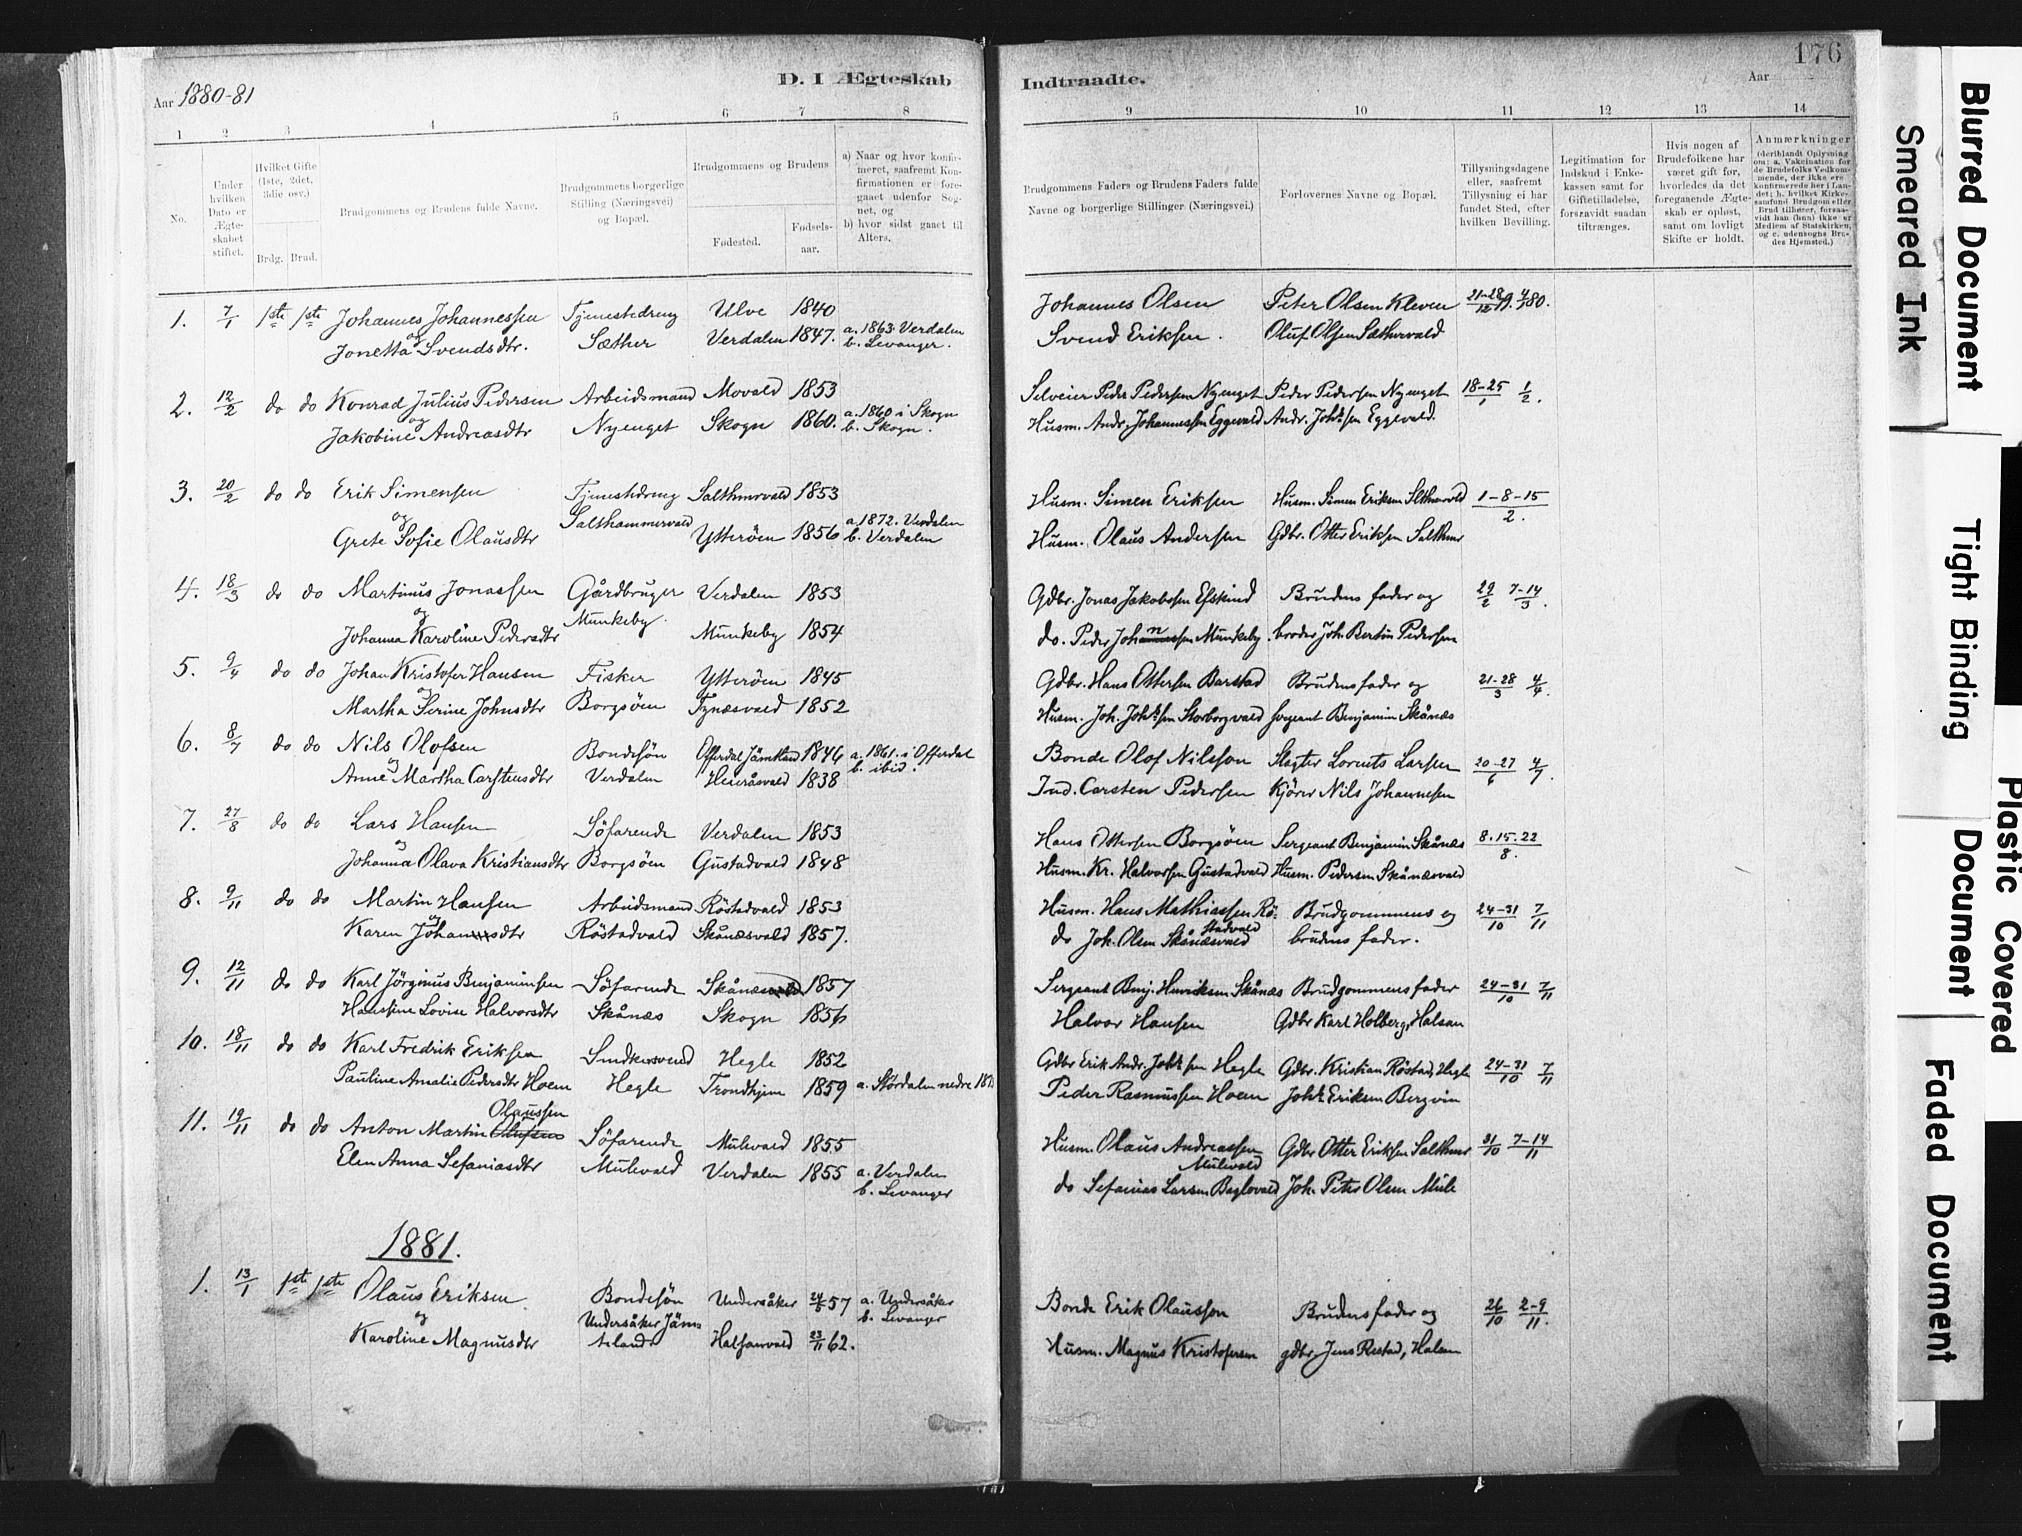 176
Aar 1880-81
D. I Ægteskab Indtraadte.
Aar
1 2 3 4 5 6 7 8 9 10 11 12 13 14
No.
Under hvilken Dato er Ægteskabet stiftet.
Hvilket Gifte (1ste, 2det, 3die osv.)
Brdg. Brud.
Brudgommens og Brudens fulde Navne.
Brudgommens borgerlige Stilling (Næringsvei) og Bopæl.
Brudgommens og Brudens
Fødested.
Fødselsaar.
a) Naar og hvor konfirmeret, saafremt Konfirmationen er foregaaet udenfor Sognet, og
b) hvor sidst gaaet til Alters.
Brudgommens Faders og Brudens Faders fulde Navne og borgerlige Stillinger (Næringsvei.)
Forlovernes Navne og Bopæl.
Tillysningsdagene eller, saafremt Tillysning ei har fundet Sted, efter hvilken Bevilling.
Legitimation for Indskud i Enkekassen samt for Giftetilladelse, forsavidt saadan tiltrænges.
Hvis nogen af Brudefolkene har været gift før, hvorledes da det foregaaende Ægteskab er opløst, samt om lovligt Skifte er holdt.
Anmærkninger
(deriblandt Oplysning om: a. Vakcination for de Brudefolks Vedkommende, der ikke ere konfirmerede her i Landet; b. hvilket Kirkesamfund Brudgom eller Brud tilhører, forsavidt han (hun) ikke er Medlem af Statskirken, og c. udensogns Brudes Hjemsted.)
1. 7/1 1ste 1ste Johannes Johannessen Tjenestedreng Ulve 1840 Johannes Olsen Peter Olsen Kleven 21-28/12 79. 4/1 80.
og
Jonetta Svendsdtr. Sæther Verdalen 1847. a. 1863. Verdalen b. Levanger. Svend Eriksen. Oluf Olsen Sæthervald
2. 12/2 do do Konrad Julius Pedersen Arbeidsmand Movald 1853 Selveier Peder Pedersen Nyenget Peder Pedersen Nyenget 18-25/1 1/2.
og
Jakobine Andreasdtr Nyenget Skogn 1860. a. 1860 i Skogn b. Skogn. Husm. Andr. Johannessen Eggevald Andr. Johs.sen Eggevald.
3. 20/2 do do Erik Simensen Tjenestedreng Salthmrvald 1853 Husm. Simen Eriksen Husm. Simen Eriksen Slthmrvld 1-8-15/2.
og
Grete Sofie Olausdtr Salthammervald Ytterøen 1856 a. 1872. Verdalen b. Verdalen Husm. Olaus Andersen Gdbr. Otter Eriksen Salthmr
4. 18/3 do do Martinus Jonassen Gårdbruger Verdalen 1853 Gdbr. Jonas Jakobssen Efskind Brudens fader og 29/2 7-14/3.
og
Johanna Karoline Pedersdtr Munkeby. Munkeby 1854 do. Peder Johansen Munkeby broder Joh. Bertin Pedersen
5. 9/4 do do Johan Kristofer Hansen Fisker Ytterøen 1845 Gdbr. Hans Ottersen Barstad Brudens fader og 21-28/3 4/4.
og
Martha Serine Johnsdtr Borgsøen Tynæsvald 1852 Husm. Joh. Johs.sen Storborgvald sergeant Benjamin Skånæs
6. 8/7 do do Nils Olofsen Bondesøn Offerdal Jämtland 1846 a. 1861. i Offerdal b. ibid. Bonde Olof Nilsson Slagter Lorents Larsen 20-27/6 4/7.
og
Anne Martha Carstensdtr Verdalen Heieråsvald 1838 Ind. Carsten Pedersen Kjører Nils Johannesen
7. 27/8 do do Lars Hansen Söfarende Verdalen 1853 Hans Ottersen Borgsøen Sergeant Benjamin Skånæs 8.15.22/8.
og
Johanna Olava Kristiansdtr Borgsøen Gustadvald 1848 Husm. Kr. Halvorsen Gustadvald Husm. Pedersen Skånæsvald
8. 9/11 do do Martin Hansen Arbeidsmand Röstadvald 1853 Husm. Hans Mathiassen Röstadvald Brudgommens og 24-31/10 7/11
og
Karen Johansdtr Röstadvald Skånæsvald 1857. do Joh. Olsen Skånæsvald brudens fader.
9. 12/11 do do Karl Jörginus Benjaminsen Söfarende Skånæs 1857 Sergeant Benj. Henriksen Skånæs Brudgommens fader 24-31/10 7/11
Hansine Lovise Halvorsdtr Skånæs Skogn 1856 Halvor Hansen Gdbr Karl Holberg, Halsan
10. 18/11 do do Karl Fredrik Eriksen Smedkesvend Hegle 1852 Gdbr Erik Andr. Johs.sen Hegle Gdbr. Kristian Röstad, Hegle 24-31/10 7/11
Pauline Amalie Pedersdtr Hoem Hegle Trondhjem 1859 a. Stördalen nedre Peder Rasmussen Hoem Johs. Eriksen Bergvin
11. 19/11 do do Anton Martin Olaussen Söfarende Mulevald 1855 Husm. Olaus Andreassen Mulevald Gdbr Otter Eriksen Salthmr 31/10 7-14/11
Elen Anna Sefaniasdtr Mulevald Verdalen 1855 a. Verdalen b. Levanger do Sefanias Larsen Baglovald Joh. Peter Olsen Mule
1881.
1. 13/1 1ste 1ste Olaus Eriksen Bondesøn Undersåker 24/5 57 a. Undersåker b. Levanger Bonde Erik Olausson Brudens fader og 26/10 2-9/11.
og
Karoline Magnusdtr Undersåker Jämteland Halsanvald 23/11 62. Husm. Magnus Kristofersen gdbr. Jens Restad, Halsan
Blurred Document
Smeared Ink
Tight Binding
Plastic Covered Document
Faded Document